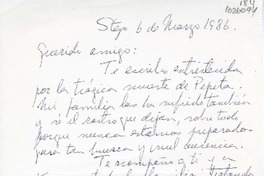 184
1026094
Stgo 6 de Marzo 1986.
Querido amigo:
Te escribo entristecida
por la trágica muerte de Pepita.
Mi familia las ha sufrido también
y sé el rastro que dejan, sobre todo
porque nunca estamos preparados
para tan brusca y cruel ausencia.
Te acompaño a ti y a